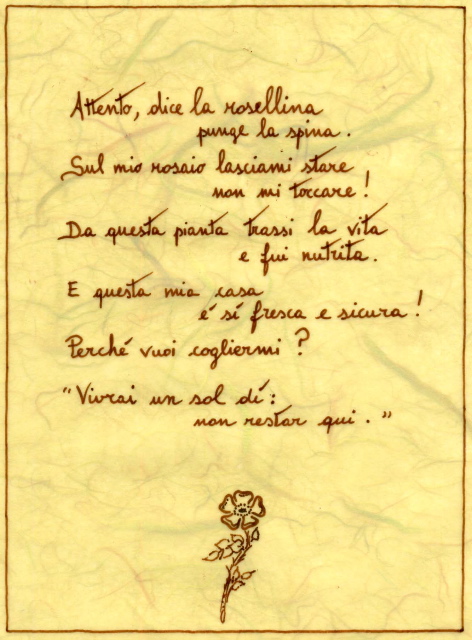 Attento, dice la rosellina
punge la spina.
Sul mio rosaio lasciami stare
non mi toccare!
Da questa pianta trassi la vita
e fui nutrita.
E questa mia casa
é sí fresca e sicura!
Perché vuoi cogliermi?
"Vivrai un sol dí:
non restar qui."